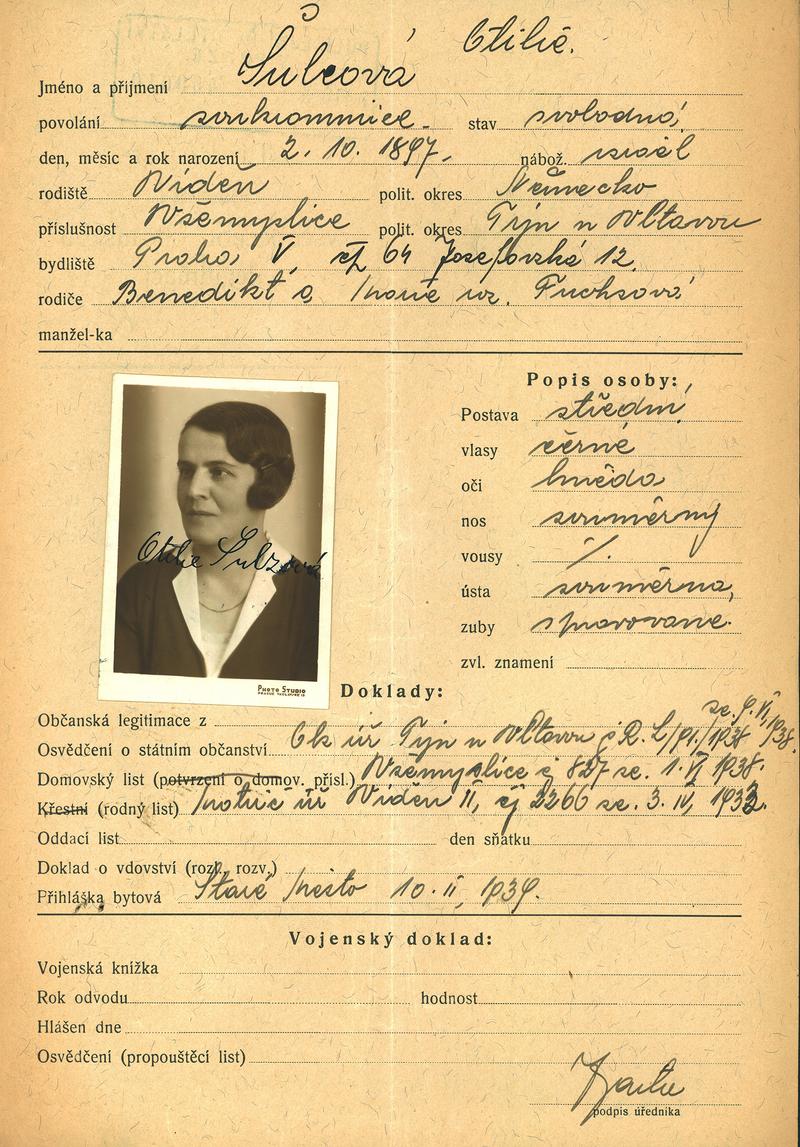 Otilie.
Jméno a příjmení Šulcová
povolání soukromnice stav svobodná
den, měsíc a rok narození 2. 10. 1897. nábož. israel
rodiště Vídeň polit. okres Německo
příslušnost Všemyslice polit. okres Týn n Vltavou
bydliště Praha V, čp 64 Josefovská 12.
rodiče Benedikt a Marie roz. Fuchsová
manžel-ka
Popis osoby:
Postava střední
vlasy černé
oči hnědé
nos souměrný
vousy /.
ústa souměrná,
zuby spravované.
zvl. znamení
Otilie Šulzová
PHOTO STUDIO
Doklady:
Občanská legitimace z
Osvědčení o státním občanství Ok úř Týn n Vltavou č. 1938 ze. 9. VI, 1938.
Domovský list (potvrzení o domov. přísl.) Všemyslice čj 827 ze. 1. VI 1938.
Křestní (rodný list) Matric úř Vídeň II, čj 2266 ze. 3. IV, 1932.
Oddací list den sňatku
Doklad o vdovství (rozl. rozv.)
Přihláška bytová Staré Město 10. II, 1939.
Vojenský doklad:
Vojenská knížka
Rok odvodu hodnost
Hlášen dne
Osvědčení (propouštěcí list)
podpis úředníka